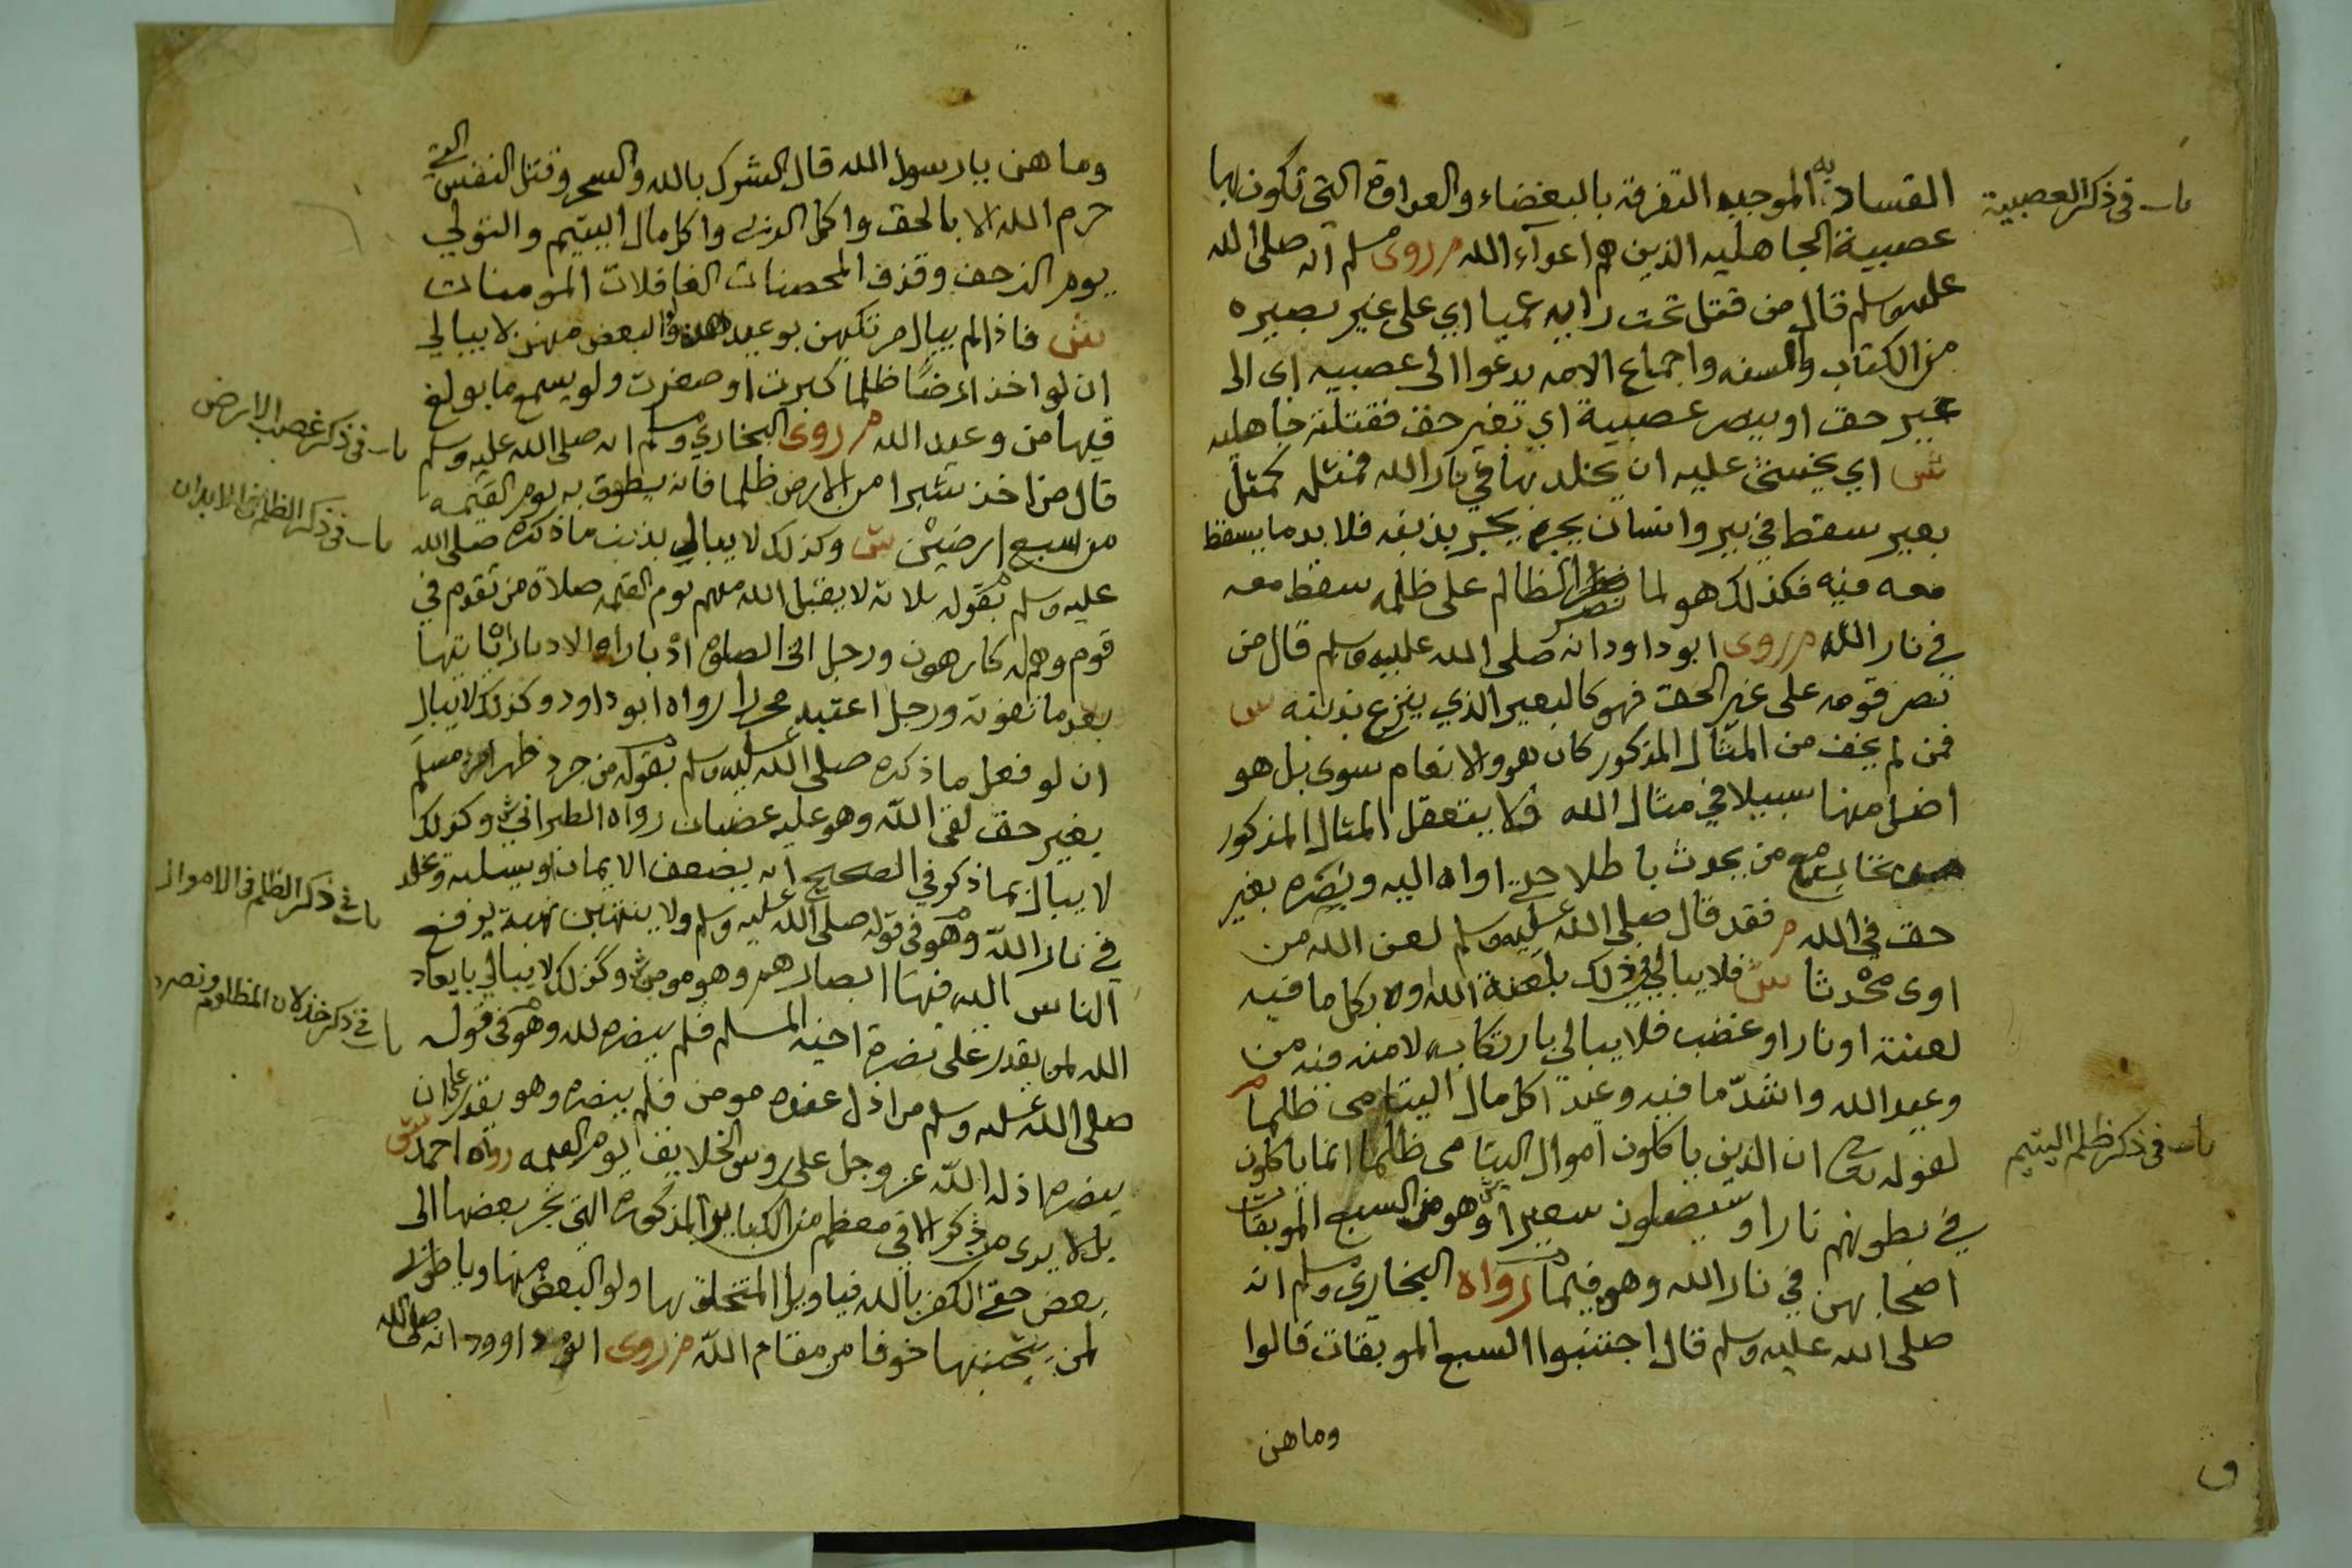 باب في ذكر العصبية
الفساد به الموجبه التفرقة بالبغضاء والعداوة التي تكون بها
عصبية الجاهليه الذين هم اعداء الله م روى مسلم انه صلى الله
عليه وسلم قال من قتل تحت رايه عميا اي على غير بصيره
من الكتاب والسنه واجماع الامه يدعوا الى عصبيه اى الى
غير حق او ينصر عصبية اي بغير حق فقتلته جاهليه
ش اي يخشى عليه ان يخلد بها في نار الله فمثله كمثل
بعير سقط في بير وانسان يجره بذنبه فلا بد ما يسقط
معه فيه فكذلك هو لما نصر الظالم على ظلمه سقط معه
في نار الله م روى ابو داود انه صلى الله عليه وسلم قال من
نصر قومه على غير الحق فهو كالبعير الذي ينزع بذنبه ش
فمن لم يخف من المثال المذكور كان هو والانعام سوى بل هو
اضل منها سبيلا في مثال الله فلا يتعقل المثال المذكور
من يحدث باطلا حتى اواه اليه ونصره بغير
حق في الله م فقد قال صلى الله عليه وسلم لعن الله من
اوى محدثا ش فلا يبالي في ذلك بلعنة الله ولا بكل ما فيه
لعنة او نار او غضب فلا يبالي بارتكابه لامنه فيه من
وعيد الله واشد ما فيه وعيد اكل مال اليتامى ظلما م
باب في ذكر ظلم اليتيم
لقوله تعالى ان الذين ياكلون اموال اليتامى ظلما انما ياكلون
في بطونهم نارا وسيصلون سعيرا ش وهو من السبع الموبقات
اصحابهن في نار الله وهو فيما رواه البخاري ومسلم انه
صلى الله عليه وسلم قال اجتنبوا السبع الموبقات قالوا
وما هن
وما هن يا رسول الله قال الشرك بالله والسحر وقتل النفس التي
حرم الله الا بالحق واكل الربا واكل مال اليتيم والتولي
يوم الزحف وقذف المحصنات الغافلات المومنات
ش فاذا لم يبال مرتكبهن بوعيد هذه والبعض منهن لا يبالي
ان لو اخذ ارضا ظلما كبرت او صغرت ولو يسمع ما بولغ
باب في ذكر غصب الارض
فيها من وعيد الله م روى البخاري ومسلم انه صلى الله عليه وسلم
قال من اخذ شبرا من الارض ظلما فانه يطوق به يوم القيمه
باب في ذكر الظلم في الابدان
من سبع ارضين ش وكذلك لا يبالي بذنب ما ذكره صلى الله
عليه وسلم بقوله ثلاثة لا يقبل الله منهم يوم القيمه صلاة من تقدم في
قوم وهم له كارهون ورجل اتى الصلوة ادبارا والادبار ان ياتيها
بعد ما تفوته ورجل اعتبد محررا رواه ابو داود وكذلك لا يبال
ان لو فعل ما ذكره صلى الله عليه وسلم بقوله من جرد ظهر امرء مسلم
بغير حق لقى الله وهو عليه غضبان رواه الطبراني ش وكذلك
باب في ذكر الظلم في الاموال
لا يبال بما ذكر في الصحيح انه يضعف الايمان او يسلبه ويخلد
في نار الله وهو في قوله صلى الله عليه وسلم ولا ينتهبن نهبة يرفع
الناس اليه فيها ابصارهم وهو مومن ش وكذلك لا يبالي بايعاد
باب في ذكر خذلان المظلوم ونصره
الله لمن يقدر على نصرة اخيه المسلم فلم ينصره لله وهو في قوله
صلى الله عليه وسلم من اذل عنده مومن فلم ينصره وهو يقدر على ان
ينصره اذله الله عز وجل على روس الخلايق يوم القيمه رواه احمد ش
بل لا يدى من ذكر الا في معظم من الكباير المذكوره التي تجر بعضها الى
بعض حتى الكفر بالله فيا ويل المتخلق بها ولو البعض منها ويا طوبى
لمن يتجنبها خوفا من مقام الله م روى ابو داوود انه صلى الله